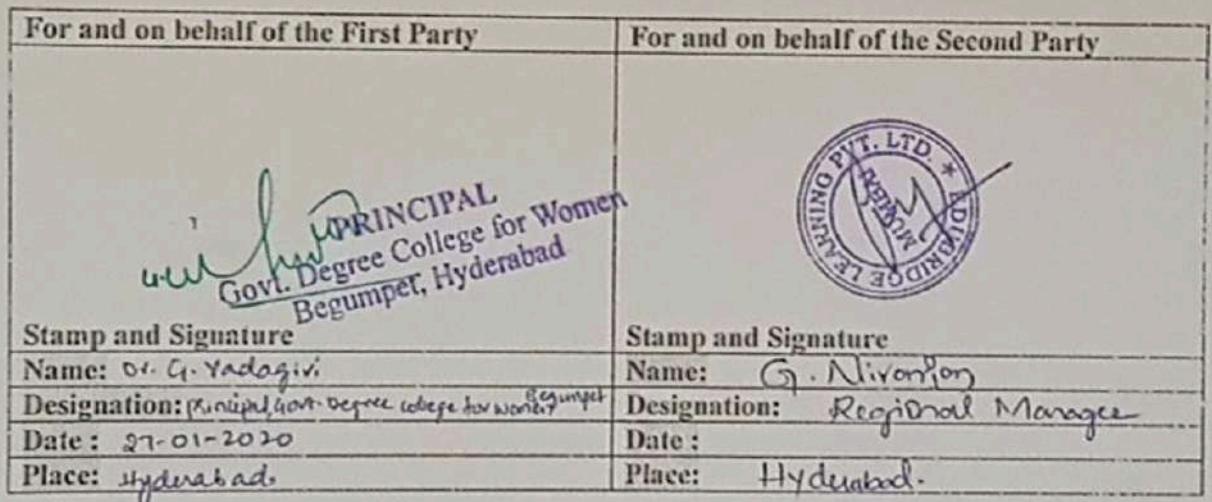 For and on behalf of the First Party
For and on behalf of the Second Party
PRINCIPAL
Govt. Degree College for Women
Begumpet, Hyderabad
LEARNING PVT. LTD. *
MUMBAI
Stamp and Signature
Stamp and Signature
Name: Dr. G. Yadagiri
Name: G. Niranjan
Designation: Principal, Govt. Degree college for women, Begumpet
Designation: Regional Manager
Date : 27-01-2020
Date :
Place: Hyderabad.
Place: Hyderabad.